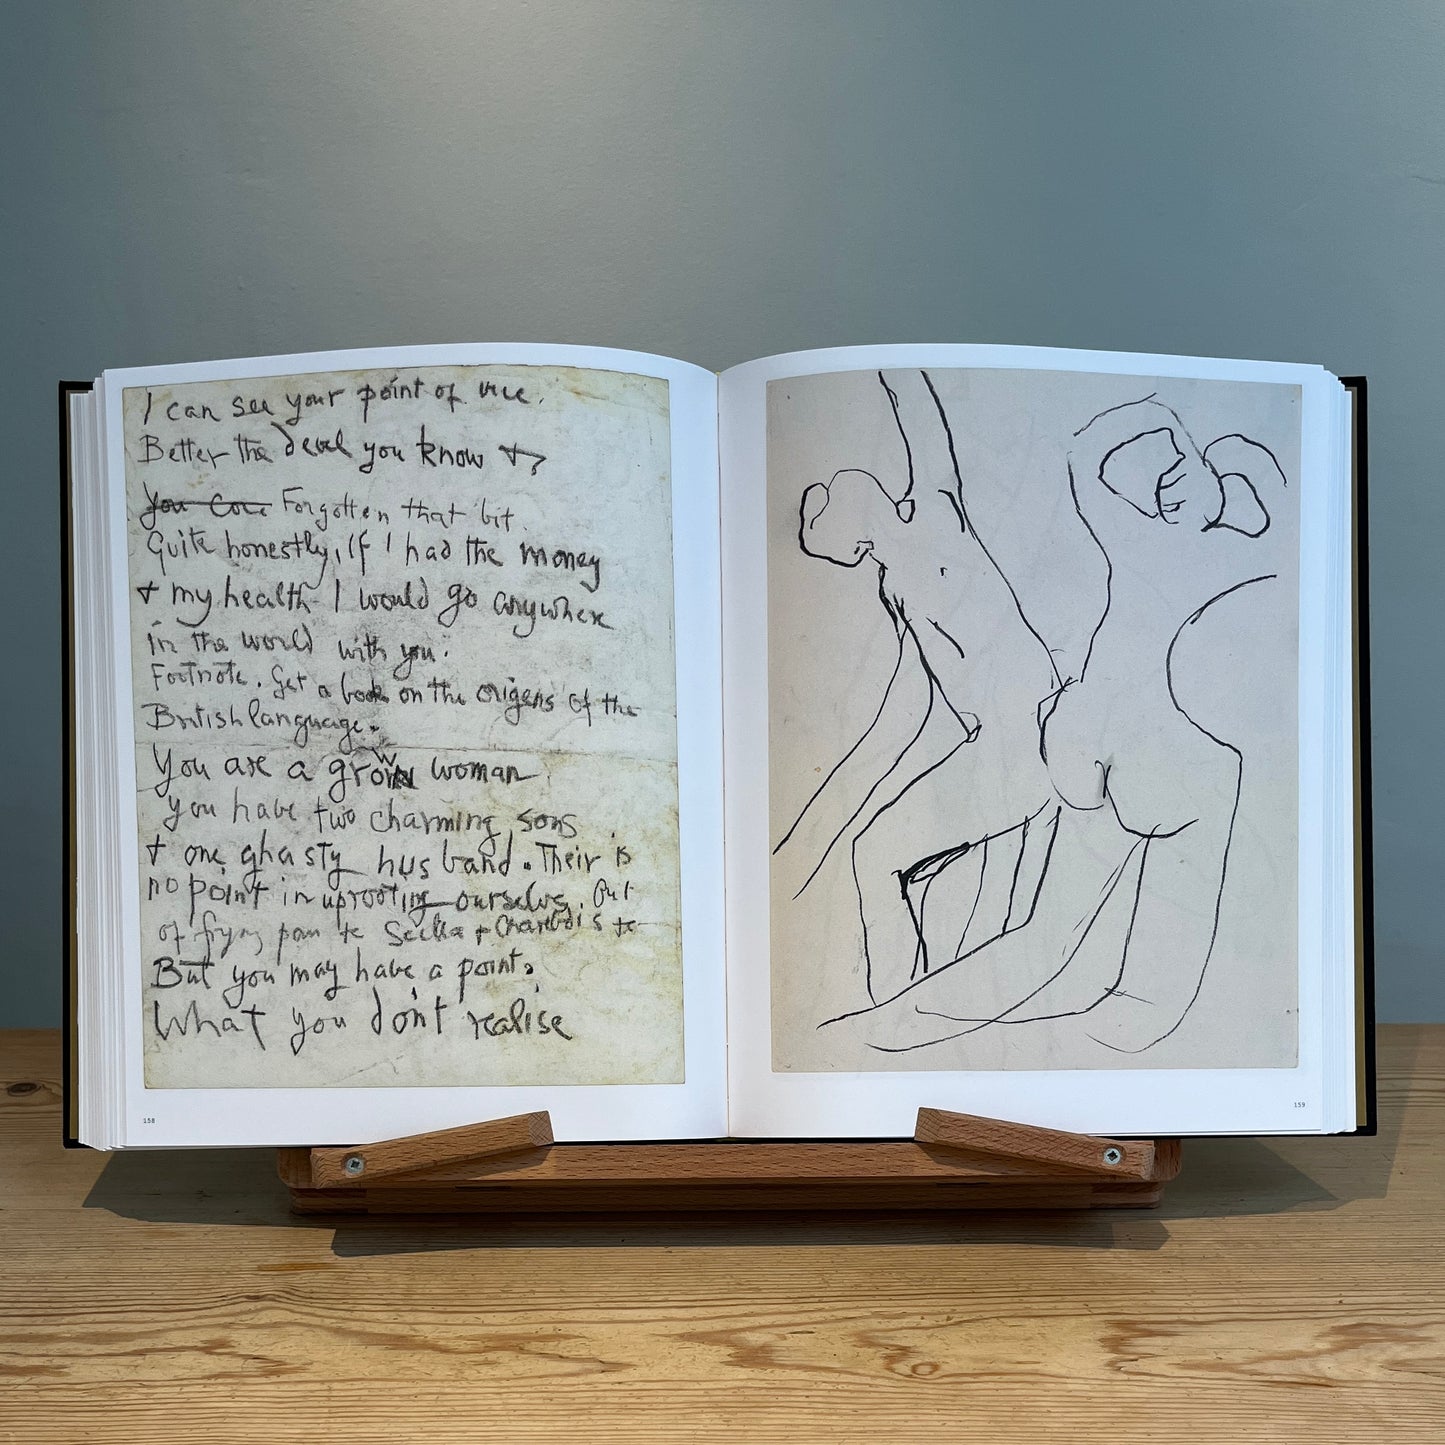 I can see your point of vue.
Better the devil you know +?
you Forgotten that bit.
Quite honestly, If I had the money
+ my health I would go anywhere
in the world with you.
Footnote. Get a book on the origens of the
British language.
You are a grown woman
you have two charming sons
+ one ghasty husband. Their is
no point in uprooting ourselvs. Out
of frying pan te Scilla + Charibdis te
But you may have a point.
What you don't realise
158
159